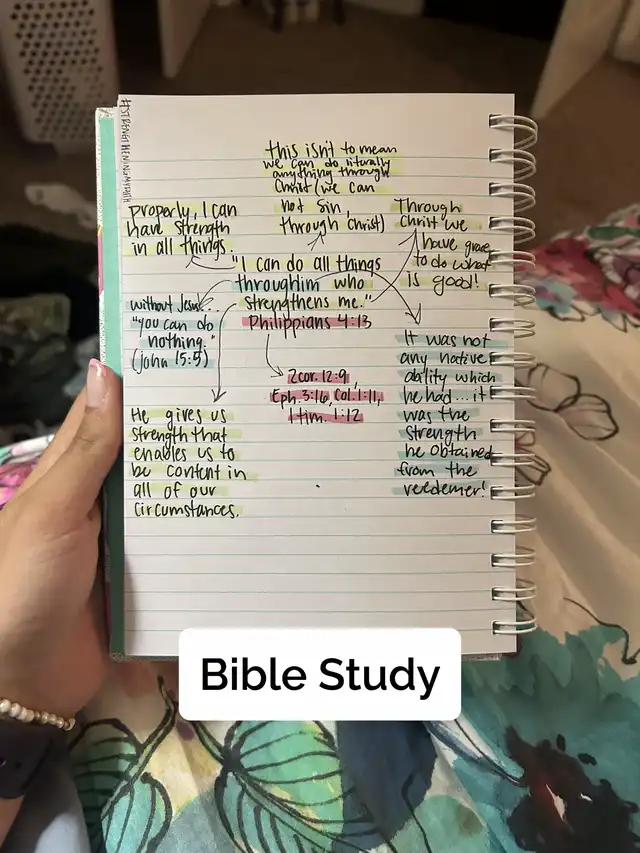 #STRENGTHENINGMYFAITH
this isn't to mean
we can do literally
anything through
Christ (we can
not sin,
through Christ)
properly, I can
have strength
in all things.
Through
Christ we
have grace
to do what
is good!
"I can do all things
through him who
strengthens me."
Philippians 4:13
without Jesus...
"you can do
nothing."
(John 15:5)
2cor. 12:9,
Eph. 3:16, Col. 1:11,
1 Tim. 1:12
It was not
any native
ability which
he had...it
was the
strength
he obtained
from the
redeemer!
He gives us
strength that
enables us to
be content in
all of our
circumstances.
Bible Study